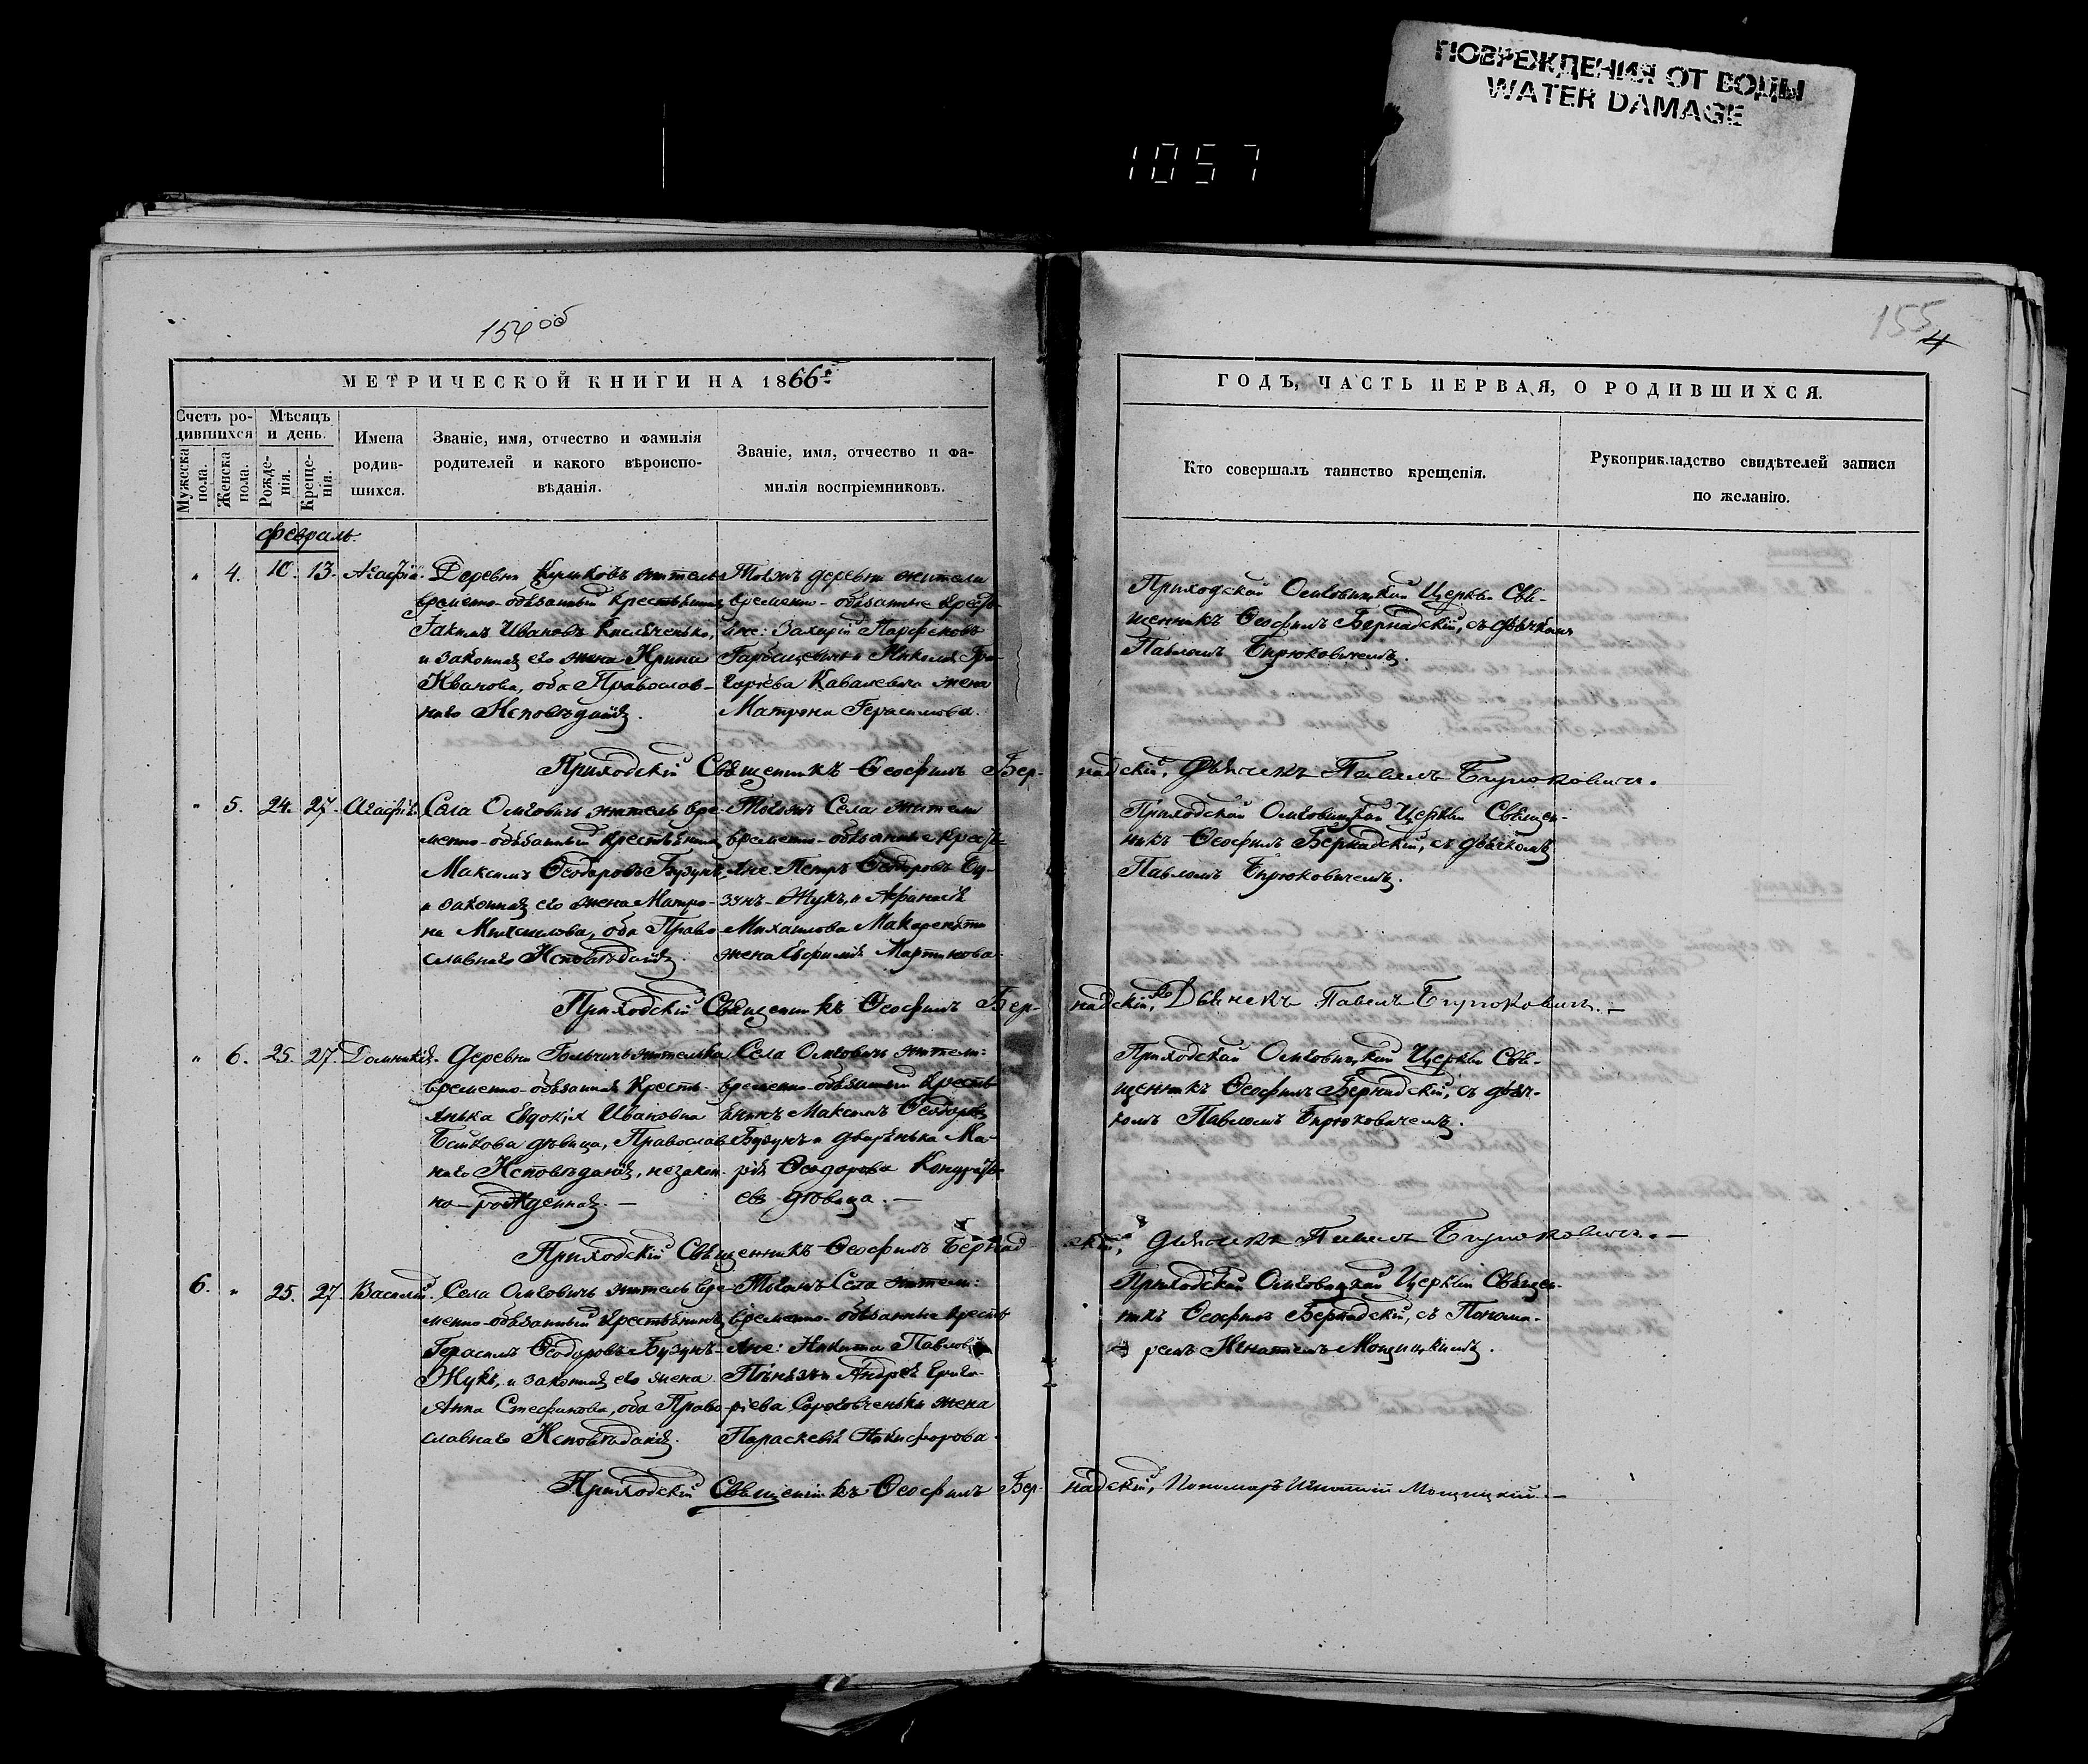 ПОВРЕЖДЕНИЯ ОТ ВОДЫ
WATER DAMAGE
1057
154 об
155
4
МЕТРИЧЕСКОЙ КНИГИ НА 1866
ГОДЪ, ЧАСТЬ ПЕРВАЯ, О РОДИВШИХСЯ.
Счетъ ро-
дившихся
Мужеска
пола.
Женска
пола.
Мѣсяцъ
и день.
Рожде-
нія.
Креще-
нія.
Имена
родив-
шихся.
Званіе, имя, отчество и фамилія
родителей и какого вѣроиспо-
вѣданія.
Званіе, имя, отчество и фа-
милія воспріемниковъ.
Кто совершалъ таинство крещенія.
Рукоприкладство свидѣтелей записи
по желанію.
Февраль.
" 4. 10. 13. Агафія.
Деревни житель
временно-обязанный крестьянинъ
Іакимъ Ивановъ
и законная его жена Ирина
Иванова, оба Православ-
наго Исповѣданія.
Тоежъ деревни жители
временно-обязанные кресть-
яне: Захарій Парфеновъ
и Николая Гри-
горіева Кавалевича жена
Матрона Герасимова.
Приходской Ольговицкой Церкви Свя-
щенникъ Ѳеофилъ Бернадскій, съ дьячкомъ
Павломъ Бирюковичемъ.
Приходскій Священникъ Ѳеофилъ Бернадскій, Дьячекъ Павелъ Бирюковичъ.
" 5. 24. 27. Агафія.
Села Ольговичъ житель вре-
менно-обязанный крестьянинъ
Максимъ Ѳеодоровъ Бузунъ,
и законная его жена Матро-
на Михаилова, оба Право-
славнаго Исповѣданія.
Тогожъ Села жители
временно-обязанные кресть-
яне: Петръ Ѳеодоровъ Бу-
зунъ-Жукъ, и Афанасія
Михаилова
жена Евфимія Мартинова.
Приходской Ольговицкой Церкви Священ-
никъ Ѳеофилъ Бернадскій, съ дьячкомъ
Павломъ Бирюковичемъ.
Приходскій Священникъ Ѳеофилъ Бернадскій, Дьячекъ Павелъ Бирюковичъ.
" 6. 25. 27. Домникія.
Деревни жителька
временно-обязанная кресть-
янька Евдокія Ивановна
дѣвица, Православ-
наго Исповѣданія, незакон-
но-рожденная.
Села Ольговичъ жители:
временно-обязанный кресть-
янинъ Максимъ Ѳеодоровъ
Бузунъ и дворянька Ма-
рія Ѳеодорова Кондрать-
ева дѣвица.
Приходской Ольговицкой Церкви Свя-
щенникъ Ѳеофилъ Бернадскій, съ дьяч-
комъ Павломъ Бирюковичемъ.
Приходскій Священникъ Ѳеофилъ Бернадскій, Дьячекъ Павелъ Бирюковичъ.
6. " 25. 27. Василій.
Села Ольговичъ житель вре-
менно-обязанный крестьянинъ
Герасимъ Ѳеодоровъ Бузунъ-
Жукъ, и законная его жена
Анна Стефанова, оба Право-
славнаго Исповѣданія.
Тогожъ Села жители:
временно-обязанные кресть-
яне: Никита Павловъ
и Андрея Григо-
ріева жена
Параскевія Никифорова.
Приходской Ольговицкой Церкви Священ-
никъ Ѳеофилъ Бернадскій, съ Понома-
ремъ Игнатіемъ Мощицкимъ.
Приходскій Священникъ Ѳеофилъ Бернадскій, Пономарь Игнатій Мощицкій.